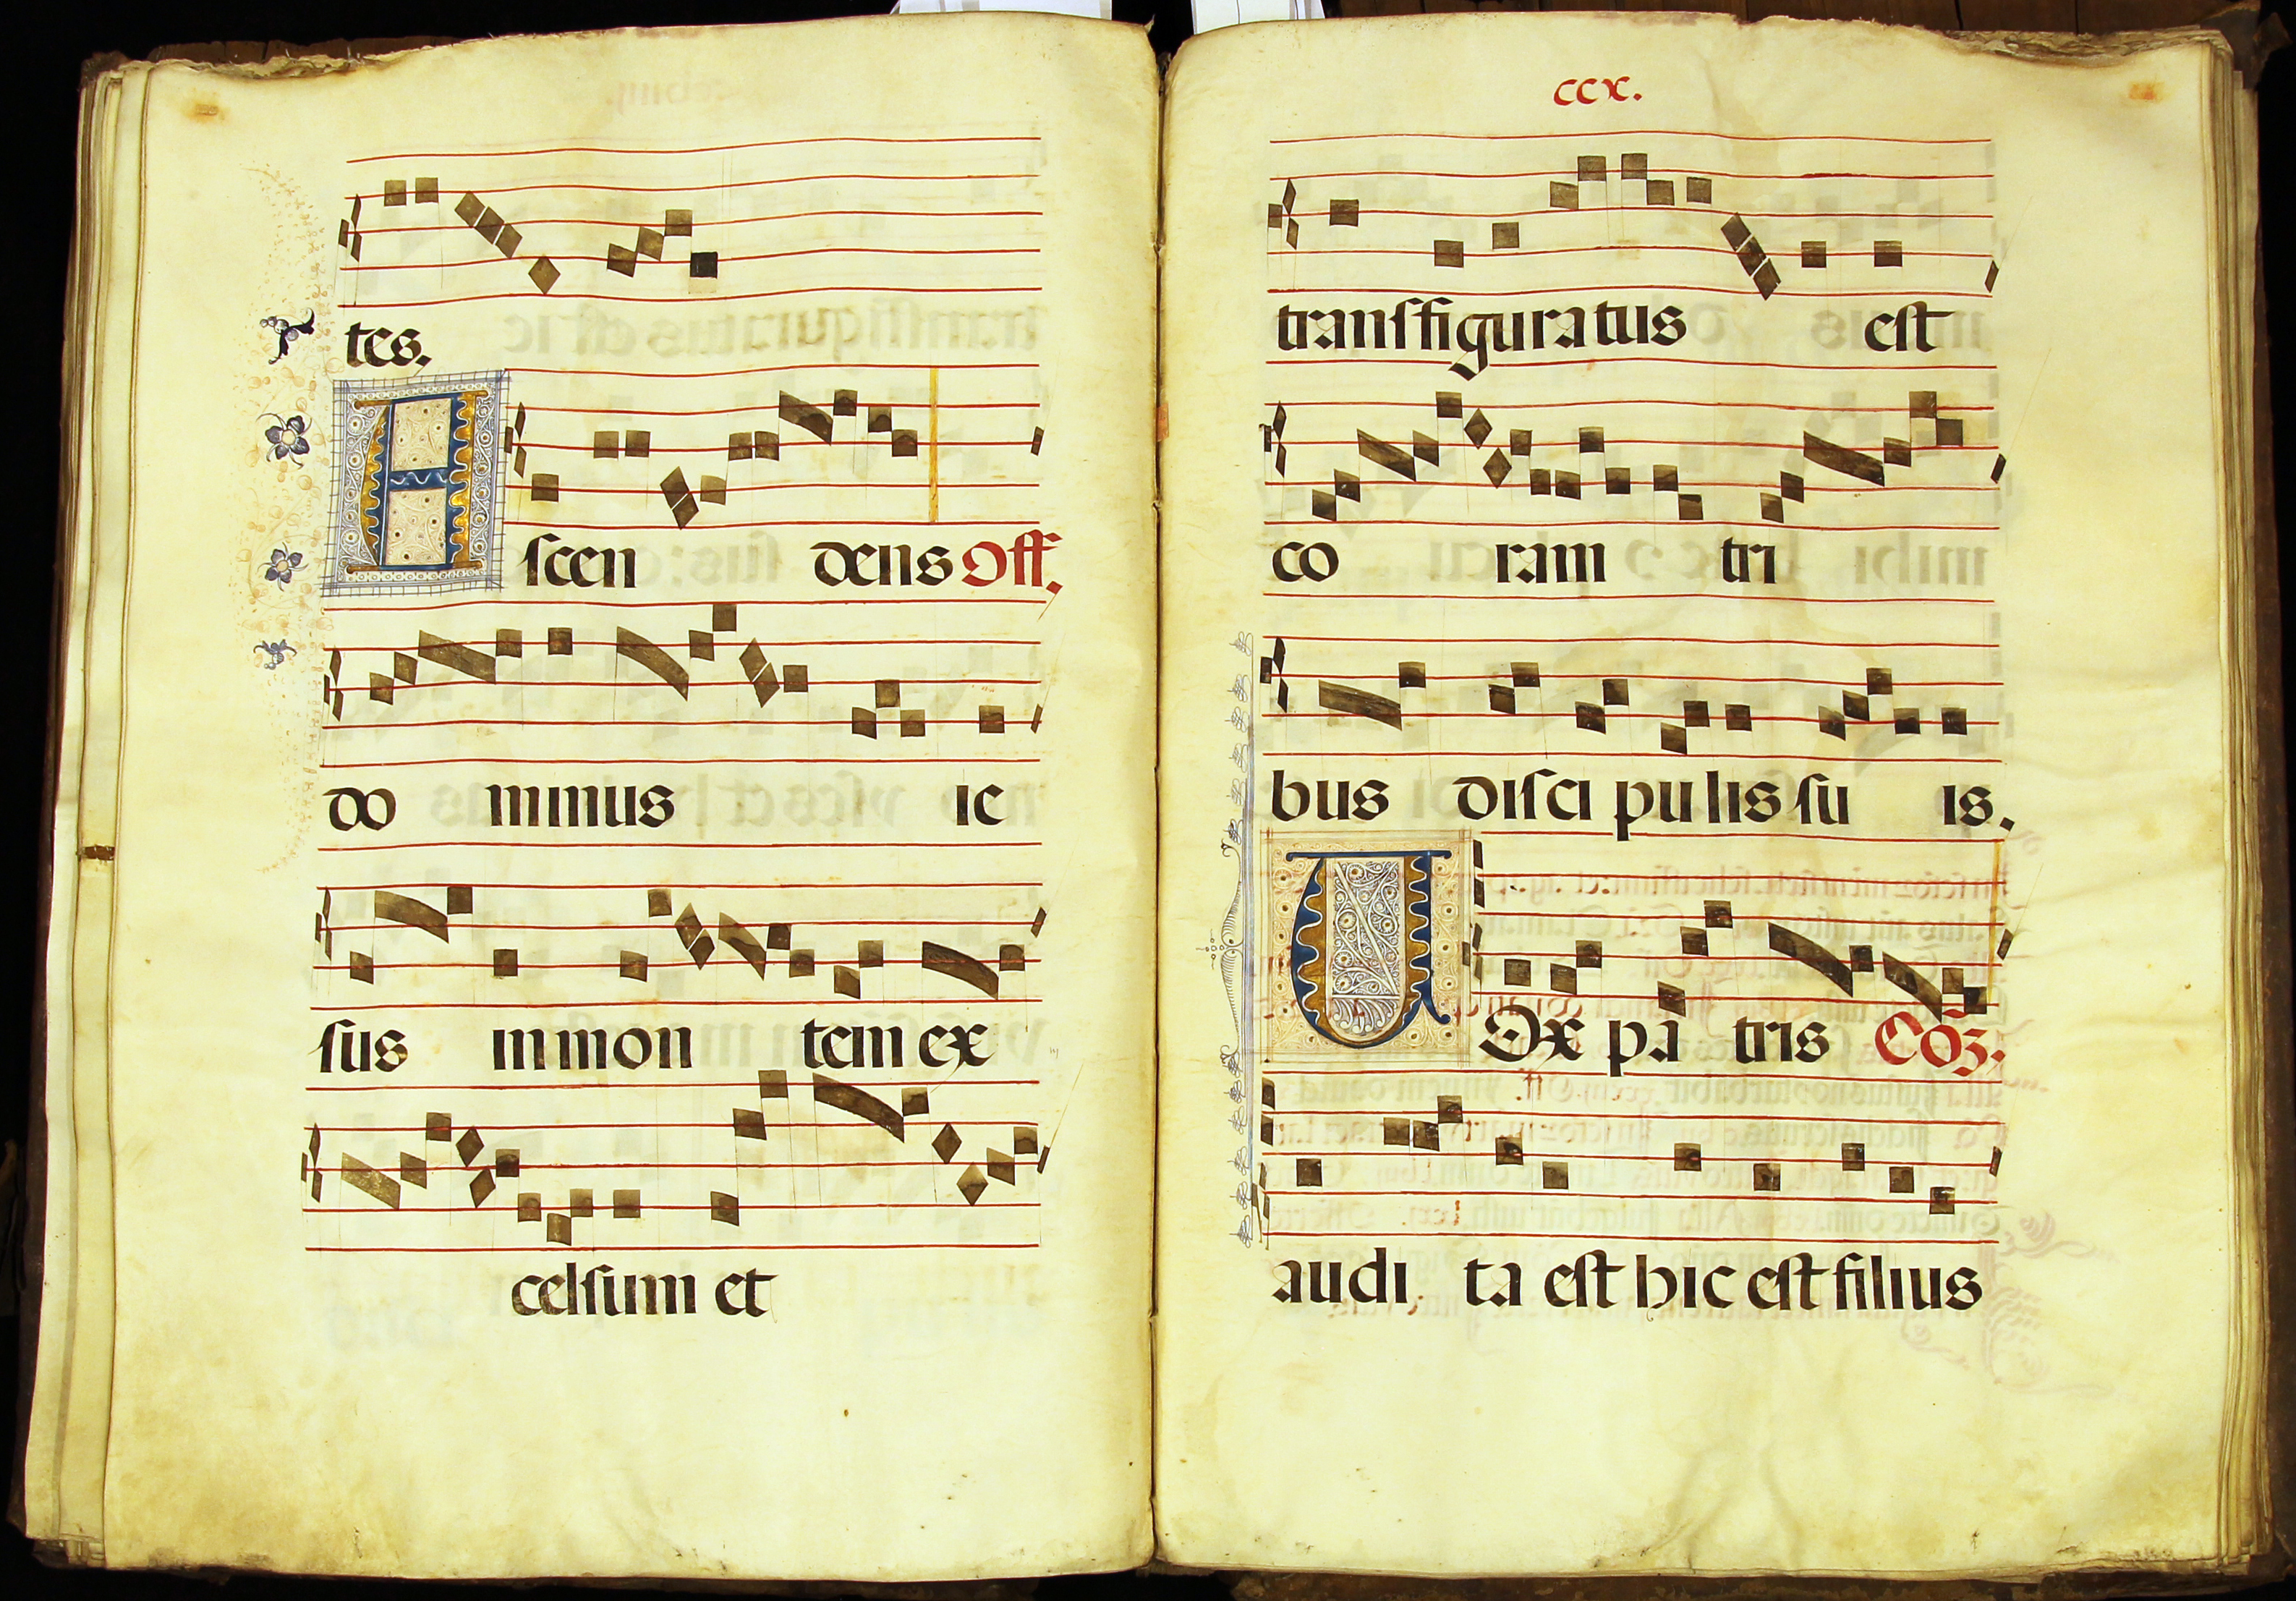 tes.
Ascen dens Off.
do minus ie
sus in mon tem ex
celsum et
ccx.
transfiguratus est
co ram tri
bus disci pu lis su is.
Vox pa tris Coz.
audi ta est hic est filius